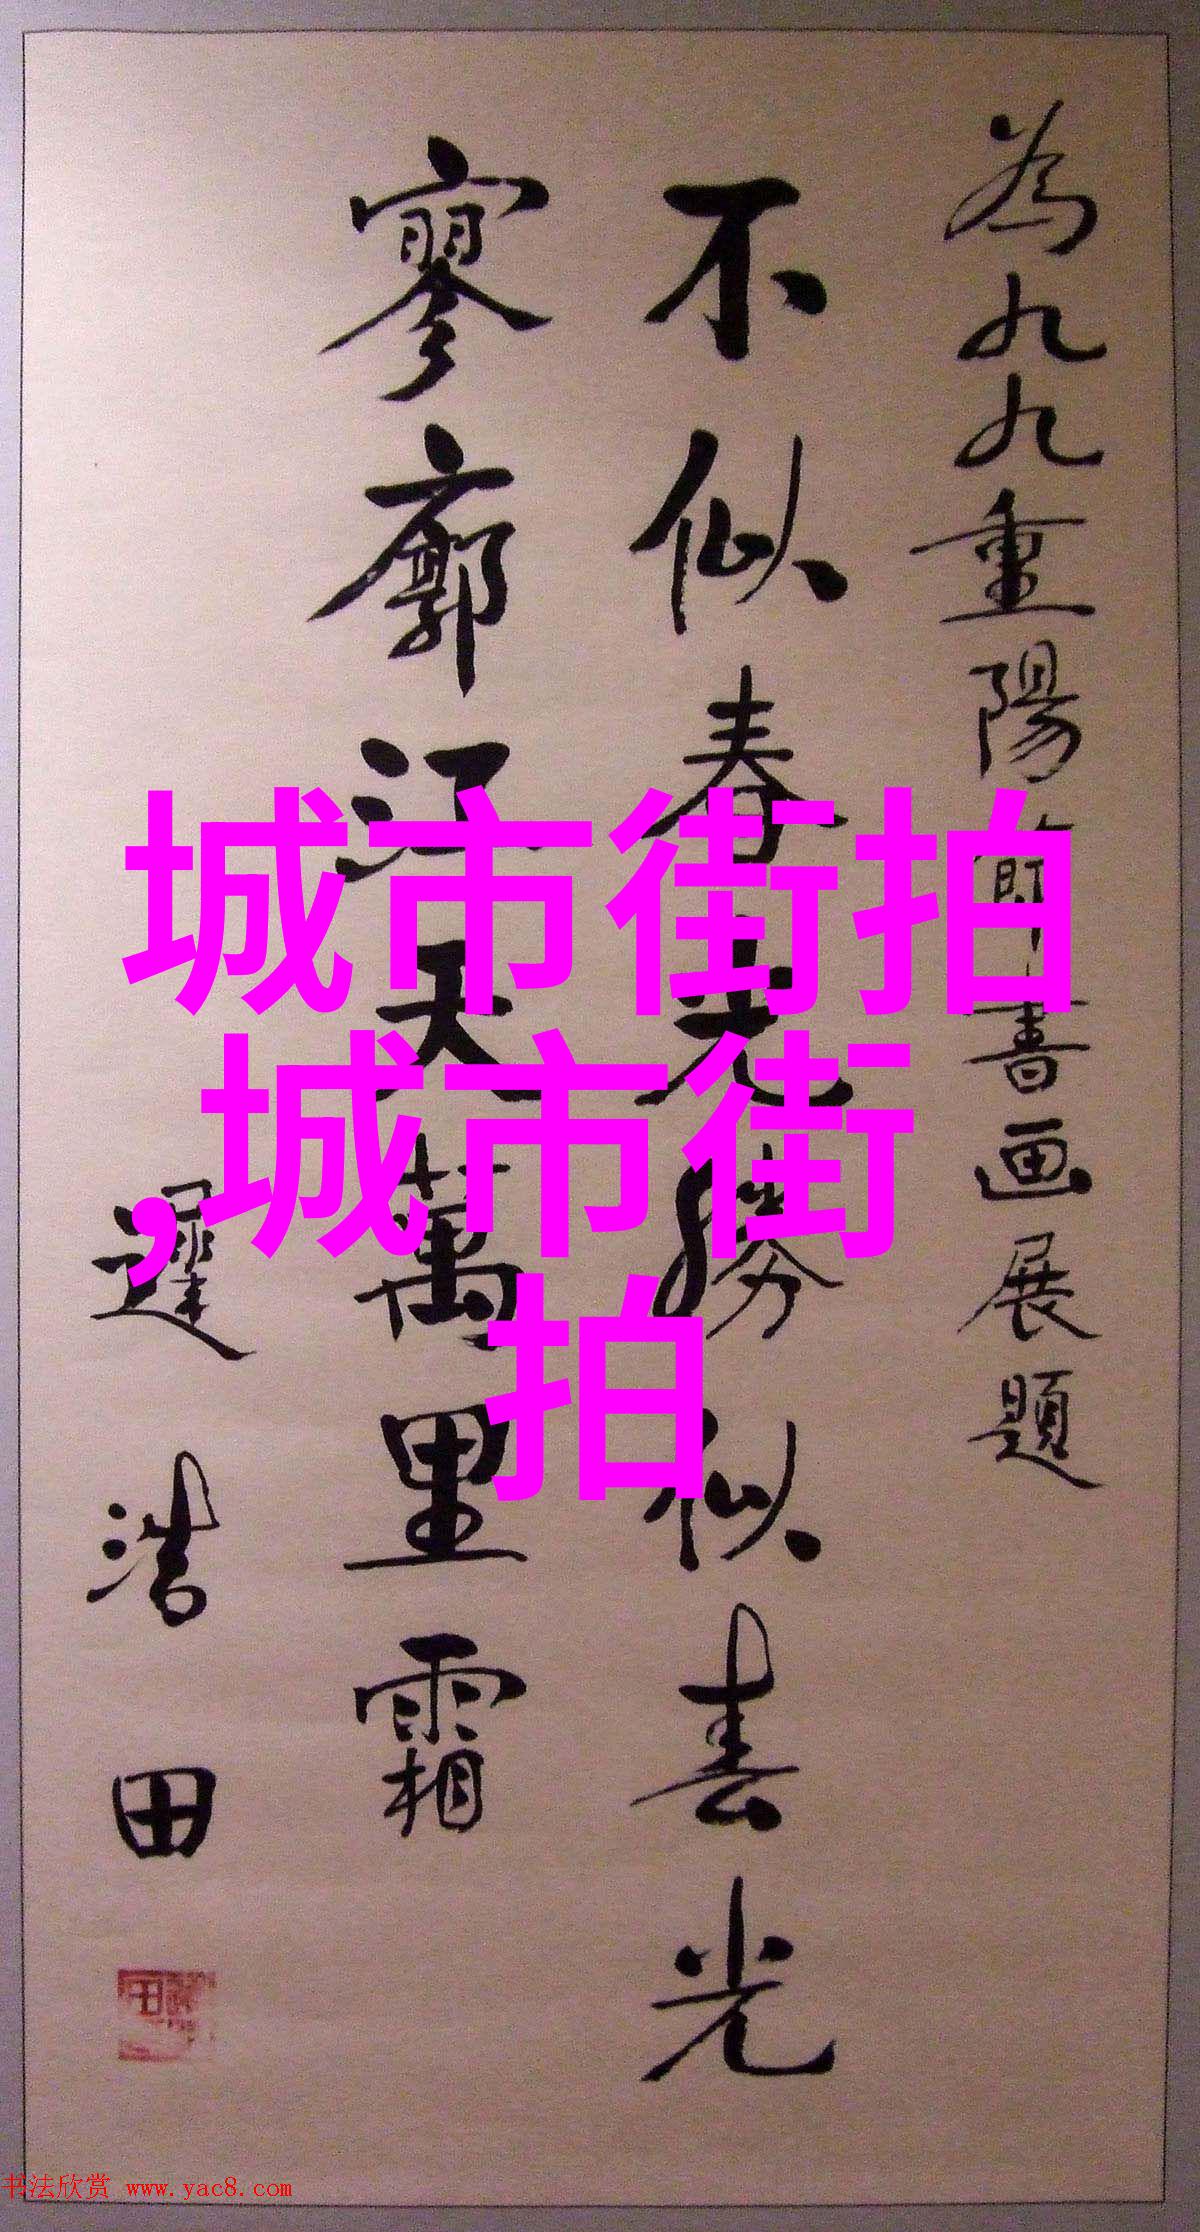 為九九重陽節書画展題
不似春光勝似春光
寥廓江天萬里霜
遲浩田
城市街拍
,城市街
拍
书法欣赏 www.yac8.com